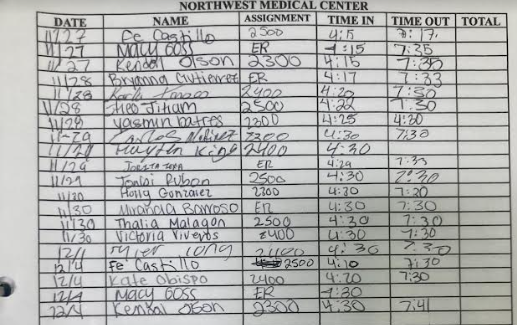 NORTHWEST MEDICAL CENTER
DATE NAME ASSIGNMENT TIME IN TIME OUT TOTAL
11/27 Fe Castillo 2500 4:15 7:17
11/27 Macy Goss ER 4:15 7:35
11/27 Kendal Olson 2300 4:15 7:35
11/28 Bryanna Gutierrez ER 4:17 7:33
11/28 2400 4:20 7:30
11/28 2500 4:22 7:30
11/29 Yasmin batres 2300 4:25 4:30
11-29 2300 4:30 7:30
King 2400 4:30
11/29 ER 4:29 7:33
11/29 Rubon 2500 4:30 7:30
11/30 Holly Gonzalez 2300 4:30 7:30
11/30 Miranda Barroso ER 4:30 7:30
11/30 Thalia Malagon 2500 4:30 7:30
11/30 Victoria Viveros 2400 4:30 7:30
12/1 2400 4:30 7:30
12/4 Fe Castillo 2500 4:10 7:30
12/4 Kate Obispo 2400 4:20 7:30
12/4 Macy Goss ER 4:30
12/4 Kendal Olson 2300 4:30 7:41